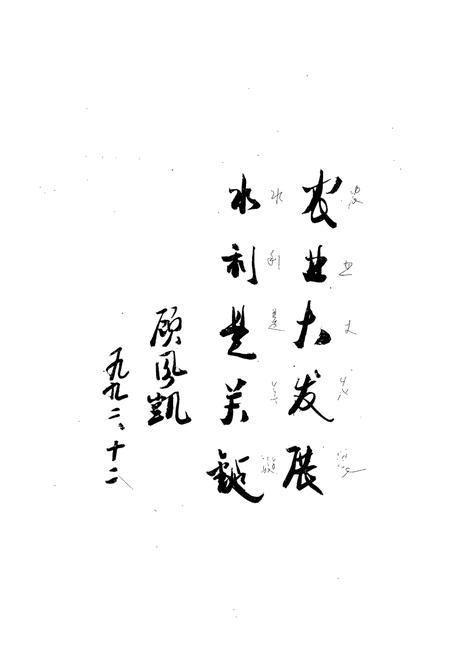 农业大发展
水利是关键
顾凤凯
一九九二、十二